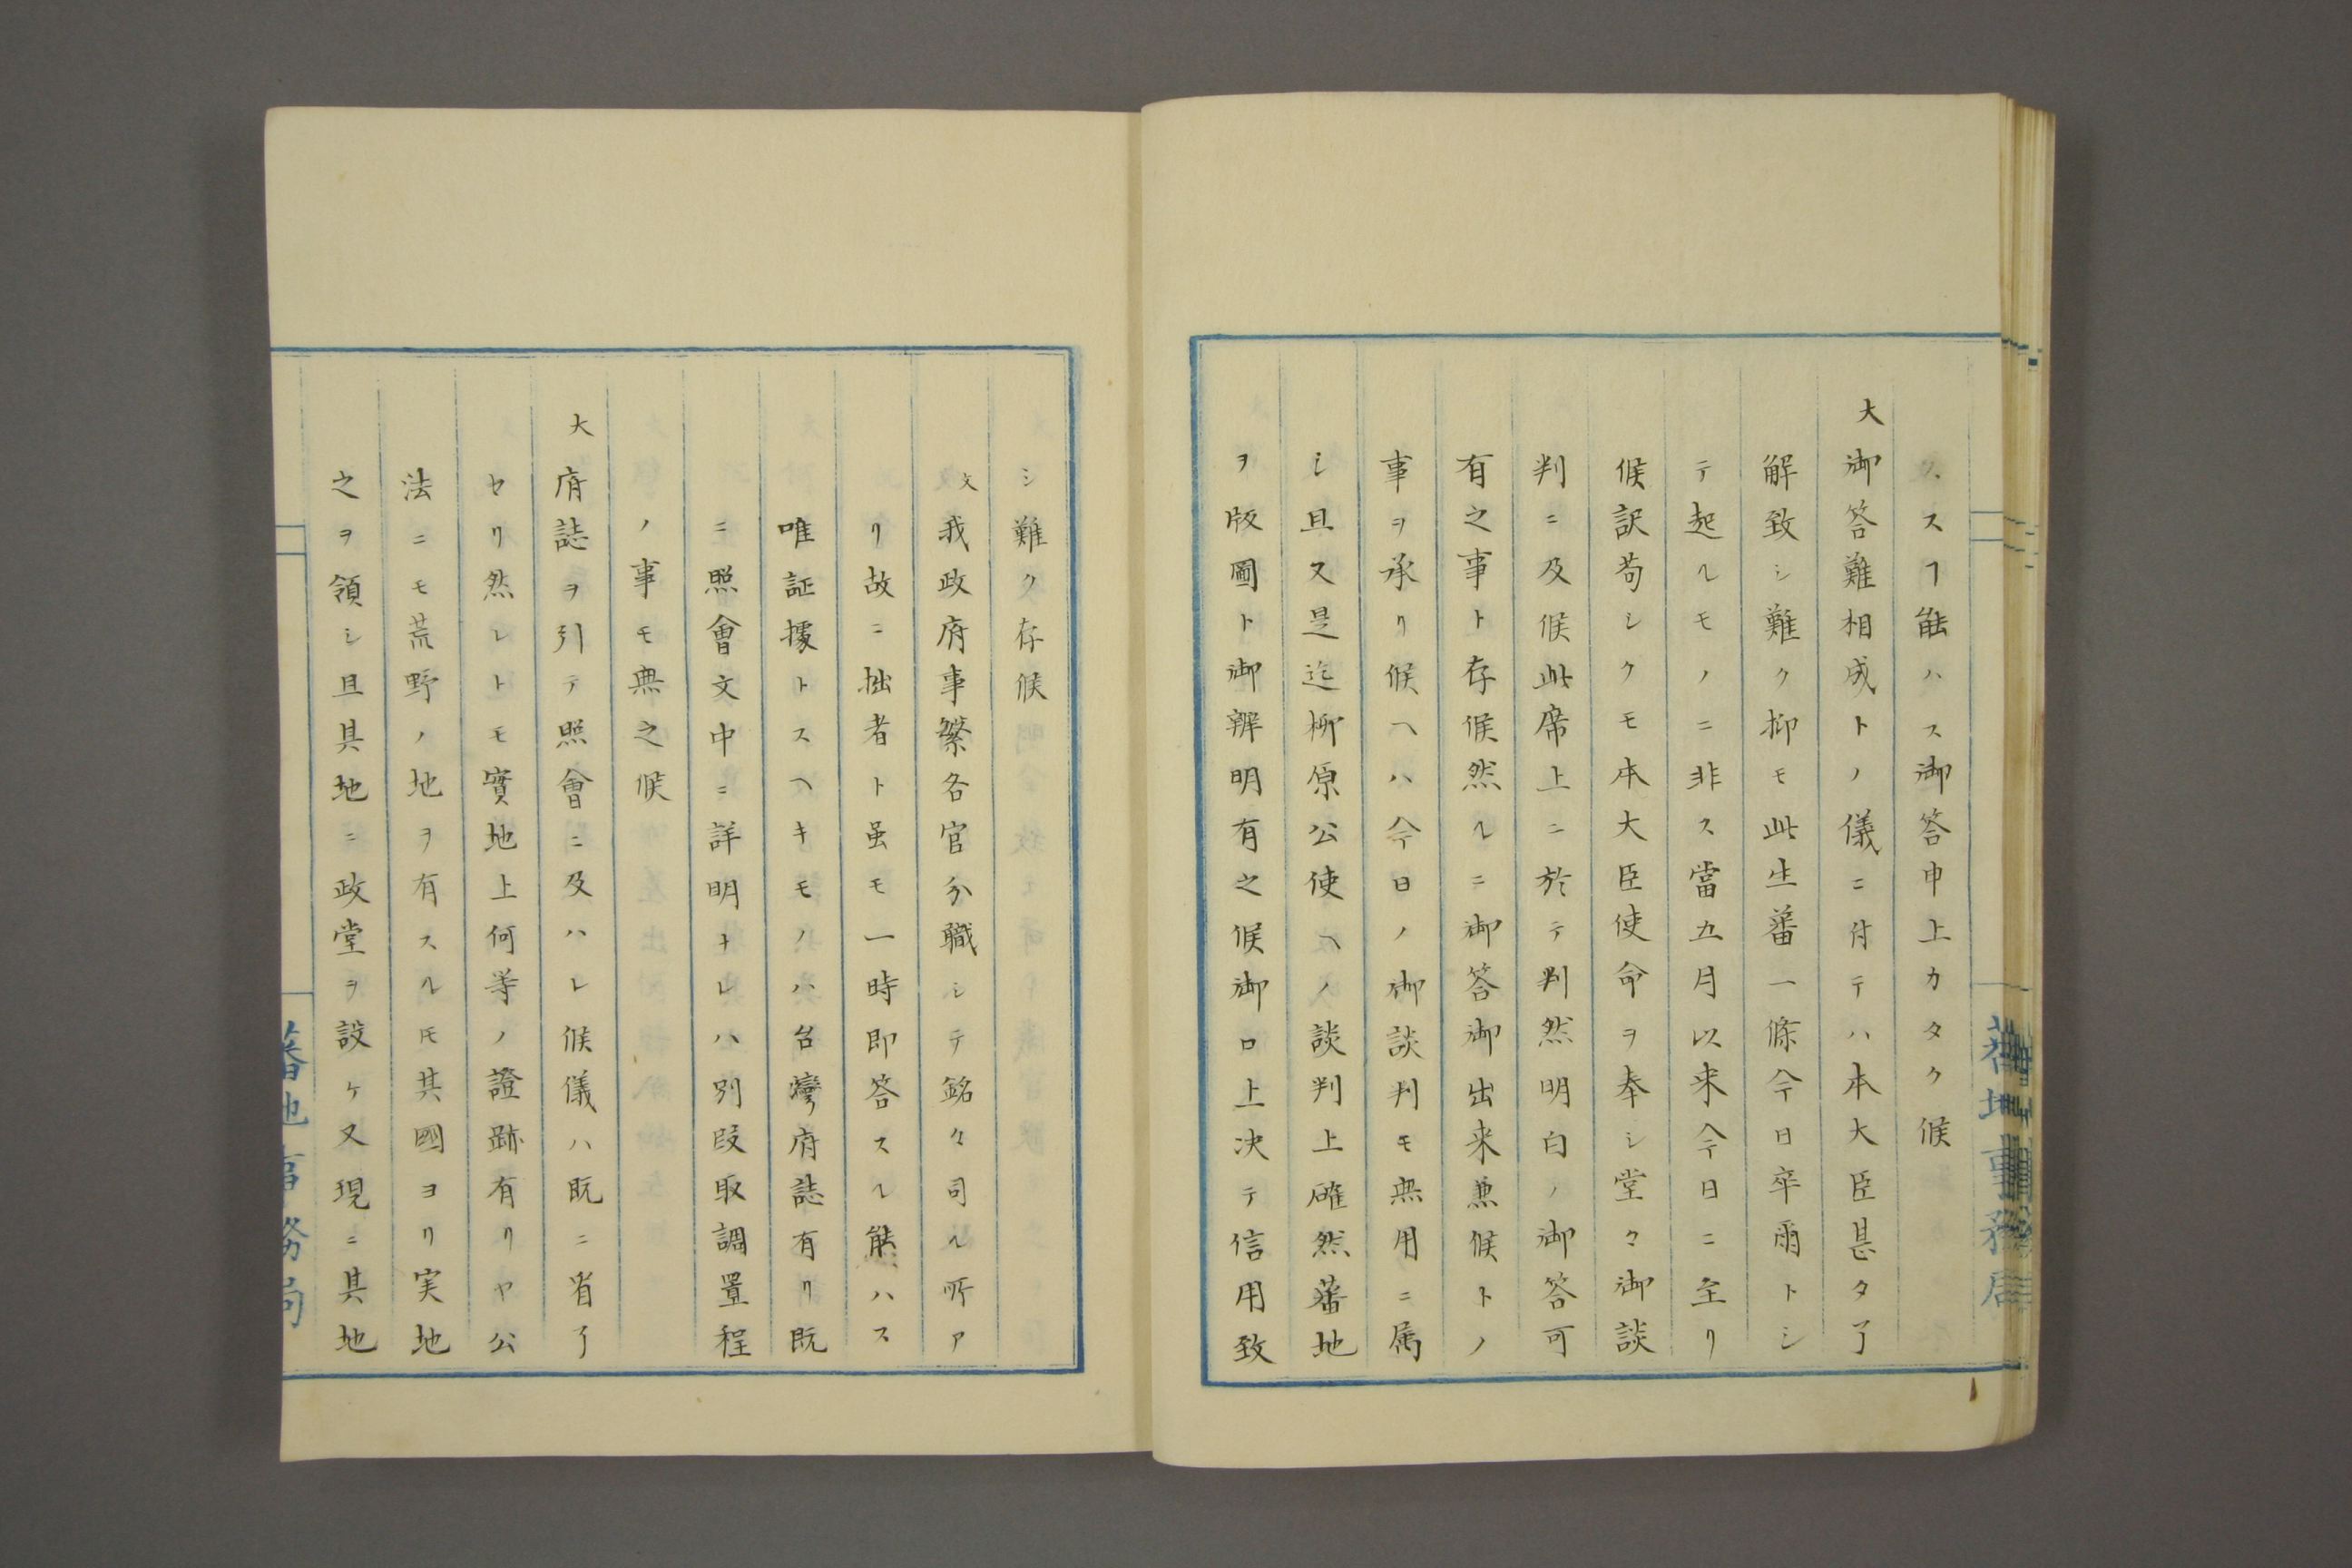 スヿ能ハス御答申上カタク候
大 御答難相成トノ儀ニ付テハ本大臣甚タ了
解致シ難ク抑モ此生蕃一條今日卒爾トシ
テ起ルモノニ非ス當五月以来今日ニ至リ
候訳苟シクモ本大臣使命ヲ奉シ堂々御談
判ニ及候此席上ニ於テ判然明白ノ御答可
有之事ト存候然ルニ御答御出来兼候トノ
事ヲ承リ候ヘハ今日ノ御談判モ無用ニ属
シ且又是迄柳原公使ヘノ談判上確然蕃地
ヲ版圖ト御辨明有之候御口上决テ信用致
シ難ク存候
文 我政府事繁各官分職シテ銘々司ル所ア
リ故ニ拙者ト虽モ一時即答スル能ハス
唯証據トスヘキモノハ台灣府誌有リ既
ニ照會文中ニ詳明ナレハ別段取調置程
ノ事モ無之候
大 府誌ヲ引テ照會ニ及ハレ候儀ハ既ニ省了
セリ然レトモ實地上何等ノ證跡有リヤ公
法ニモ荒野ノ地ヲ有スルモ其國ヨリ実地
之ヲ領シ且其地ニ政堂ヲ設ケ又現ニ其地
蕃地事務局